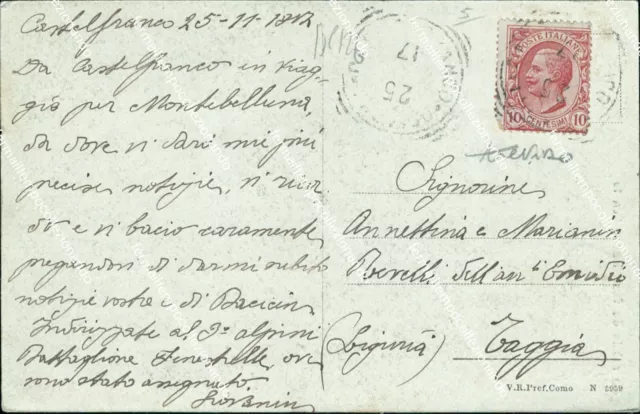 Castelfranco 25-11-1917
Da Castelfranco in viag-
gio per Montebelluna,
da dove vi darò mie più
precise notizie, vi ricor
do e vi bacio caramente
pregandovi di darmi subito
notizie vostre e di Bacicin
Indirizzate al 3º alpini
Battaglione Fenestrelle, ove
sono stato assegnato.
Giovanin
5
17
25
POSTE ITALIANE
10 CENTESIMI 10
Signorine
Annettina e Marianin
Revelli dell'
(Liguria) Taggia
V.R.Pref.Como N 5959